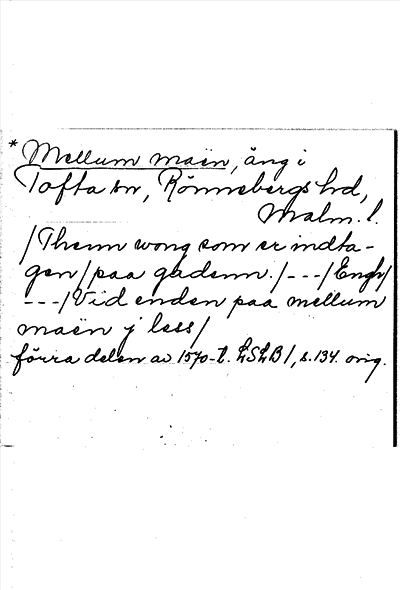 * Mellum maën, äng i
Tofta sn, Rönnebergs hd,
Malm. l.
/Thenn wong som er indta-
gen/paa gadenn./---/Engh/
---/Vid enden paa mellum
maën j less/
förra delen av 1570-t. LSLB1, s. 134. orig.